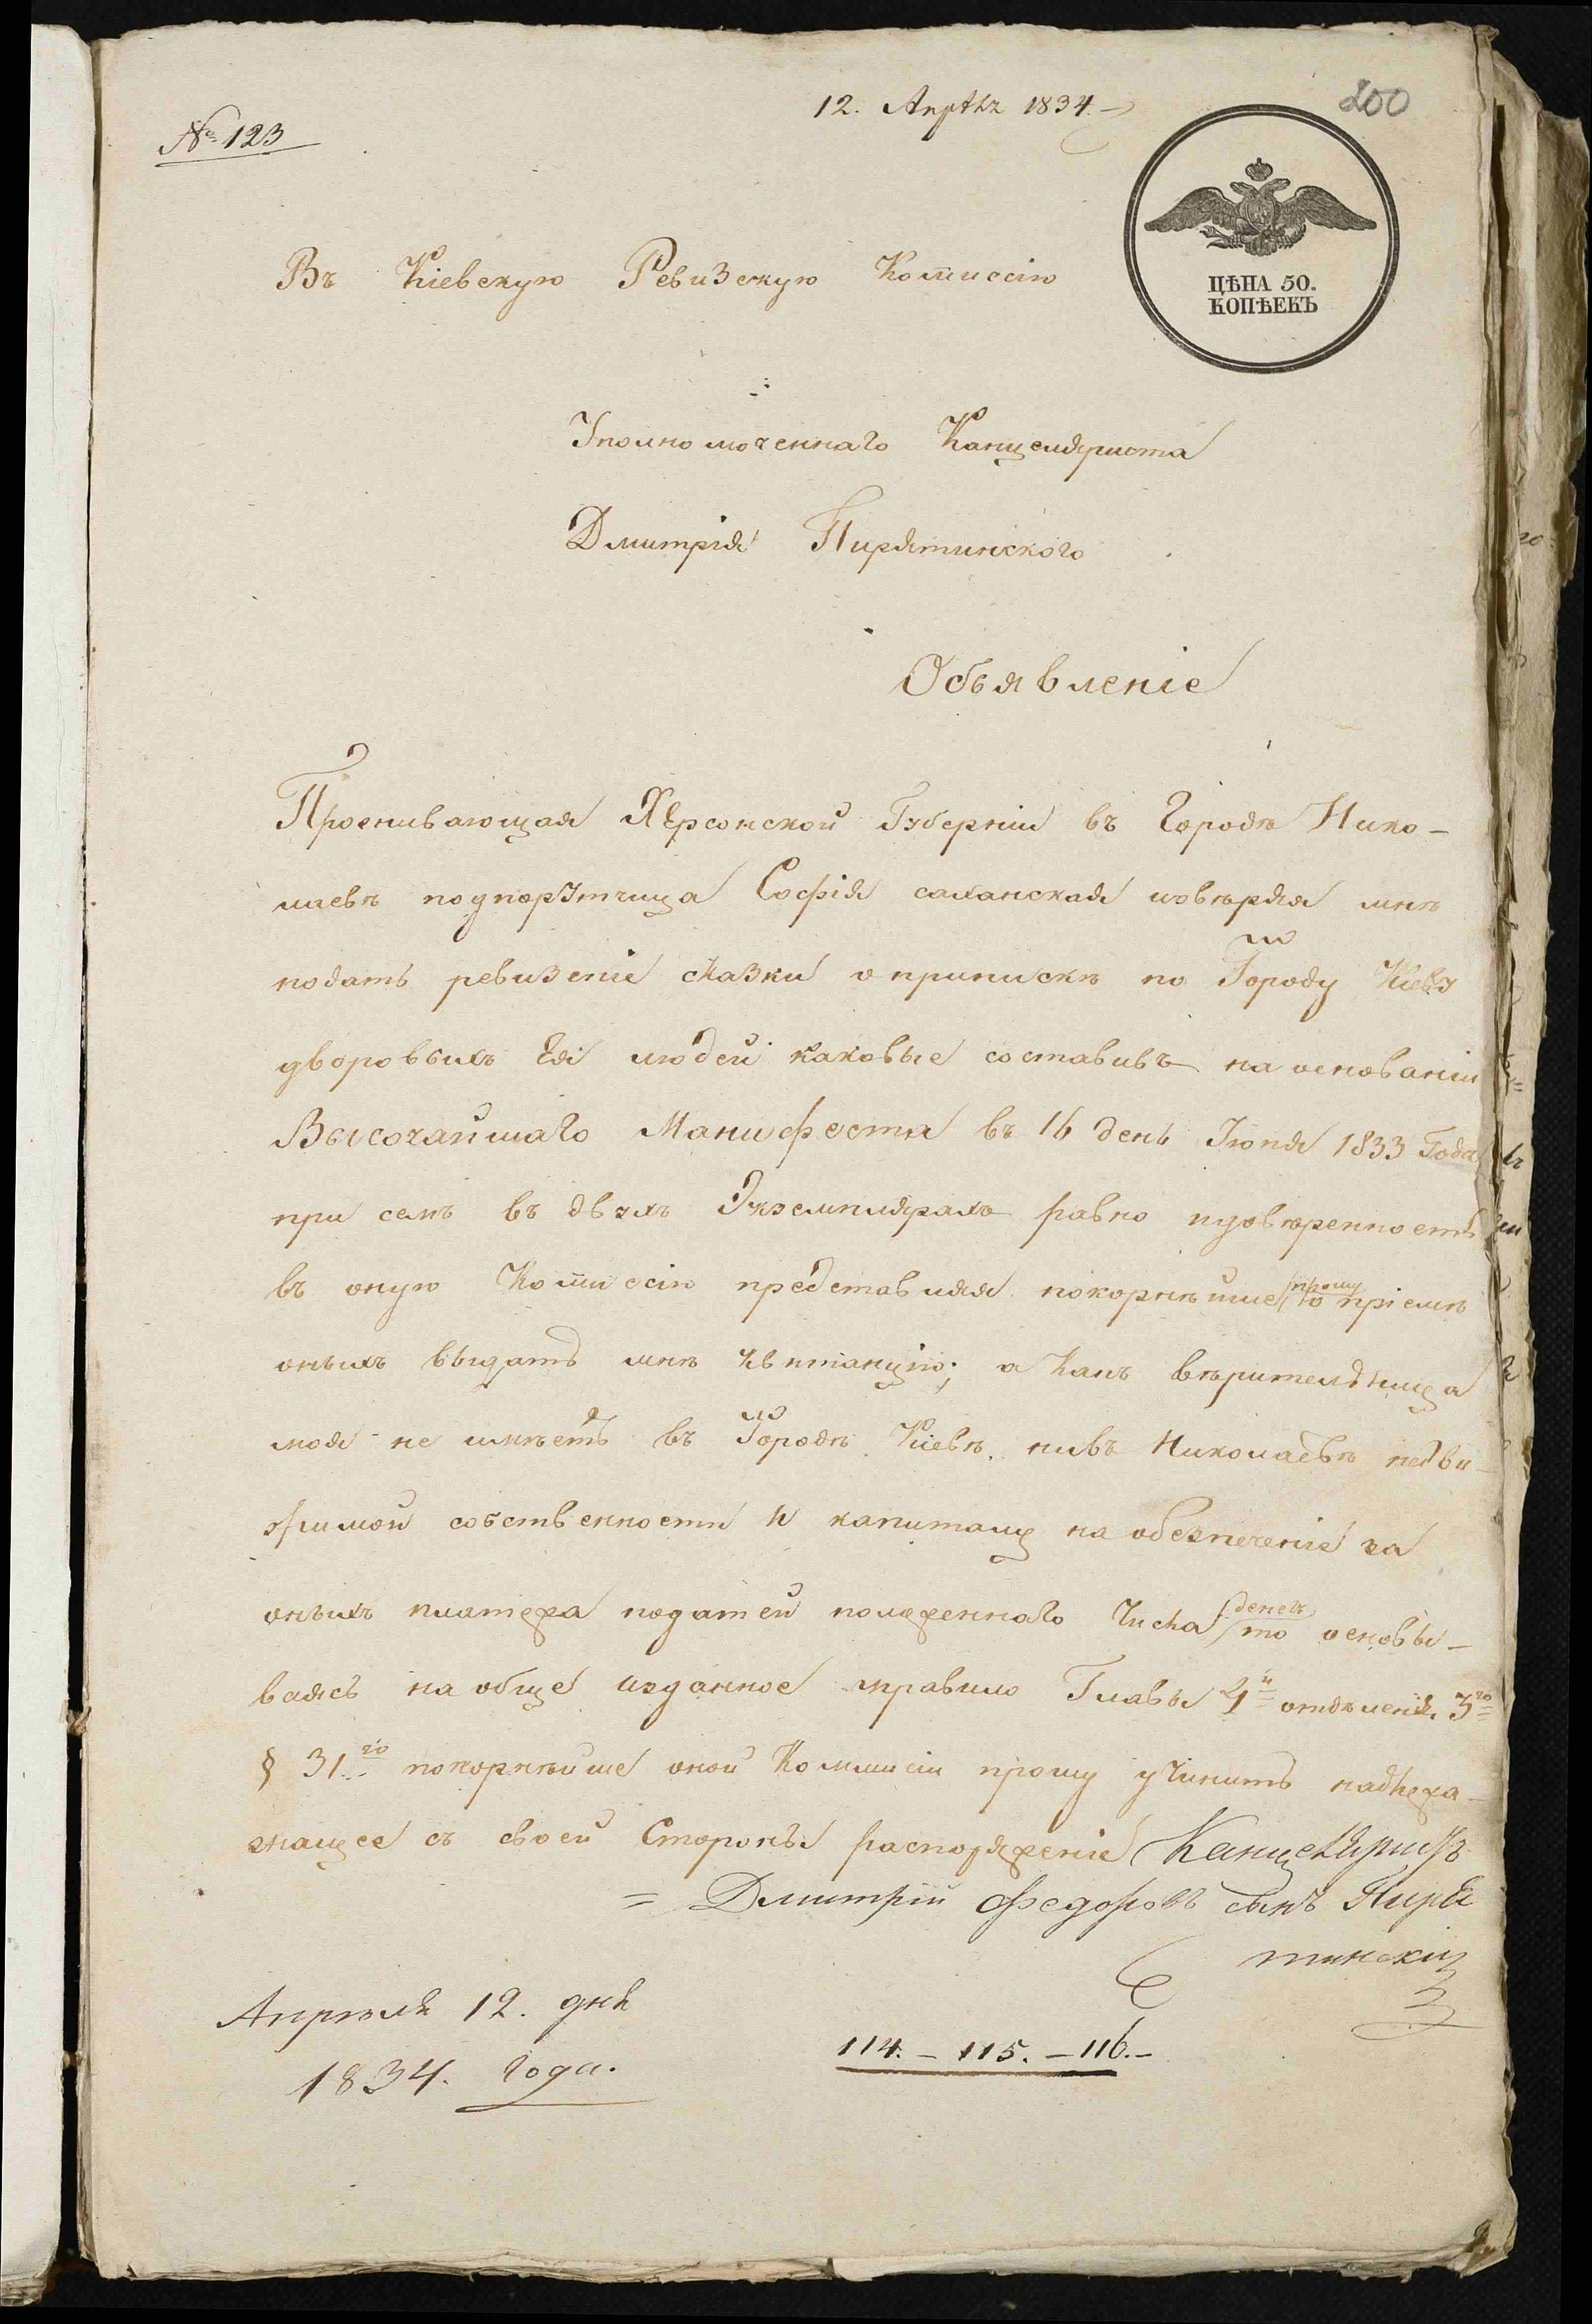 200
12. Апрѣля 1834.
№ 123
ЦѢНА 50.
КОПѢЕКЪ
Въ Кіевскую Ревизскую Коммиссію
Уполномоченнаго Канцеляриста
Дмитрія Пирятинского
Объявленіе
Проживающая Херсонской Губерніи въ Городѣ Нико-
лаевѣ подпорутчица Софія саханская повѣряя мнѣ
подать ревизскіе сказки о припискѣ по Городу Кіеву
дворовыхъ Ея людей каковые составивъ на основаніи
Высочайшаго Манифеста въ 16 день Іюня 1833 Года
при семъ въ двухъ Экземплярахъ равно и довѣренность
въ оную Коммиссію представляя покорнѣйше прошу о пріемѣ
оныхъ выдать мнѣ квитанцію; а какъ вѣрительница
моя не имѣетъ въ Городѣ Кіевѣ, ни въ Николаевѣ недви-
жимой собственности и капиталу на обезпеченіе за
оныхъ платежа податей положенного Числа денегъ то основы-
ваясь на обще изданное правило Главы 4й отдѣленія 3го
§ 31.го покорнѣйше оной Коммисіи прошу учинить надлежа-
жащее съ своей Стороны распоряженіе Канцеляристъ
= Дмитрій Федоровъ сынъ Пиря
тинскій
Апрѣля 12. дня
1834. года.
114. – 115. – 116. –